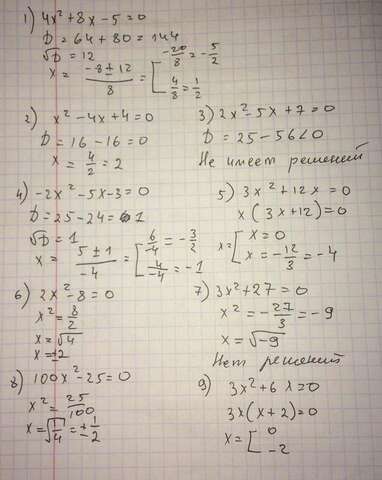 1) 4x² + 8x - 5 = 0
D = 64 + 80 = 144
√D = 12
x = (-8 ± 12)/8 = [ -20/8 = -5/2
4/8 = 1/2
2) x² - 4x + 4 = 0
D = 16 - 16 = 0
x = 4/2 = 2
3) 2x² - 5x + 7 = 0
D = 25 - 56 < 0
Не имеет решений
4) -2x² - 5x - 3 = 0
D = 25 - 24 = 1
√D = 1
x = (5 ± 1)/-4 = [ 6/-4 = -3/2
4/-4 = -1
5) 3x² + 12x = 0
x(3x + 12) = 0
x = [ x = 0
x = -12/3 = -4
6) 2x² - 8 = 0
x² = 8/2
x = √4
x = ±2
7) 3x² + 27 = 0
x² = -27/3 = -9
x = √-9
Нет решений
8) 100x² - 25 = 0
x² = 25/100
x = √1/4 = ±1/2
9) 3x² + 6x = 0
3x(x + 2) = 0
x = [ 0
-2